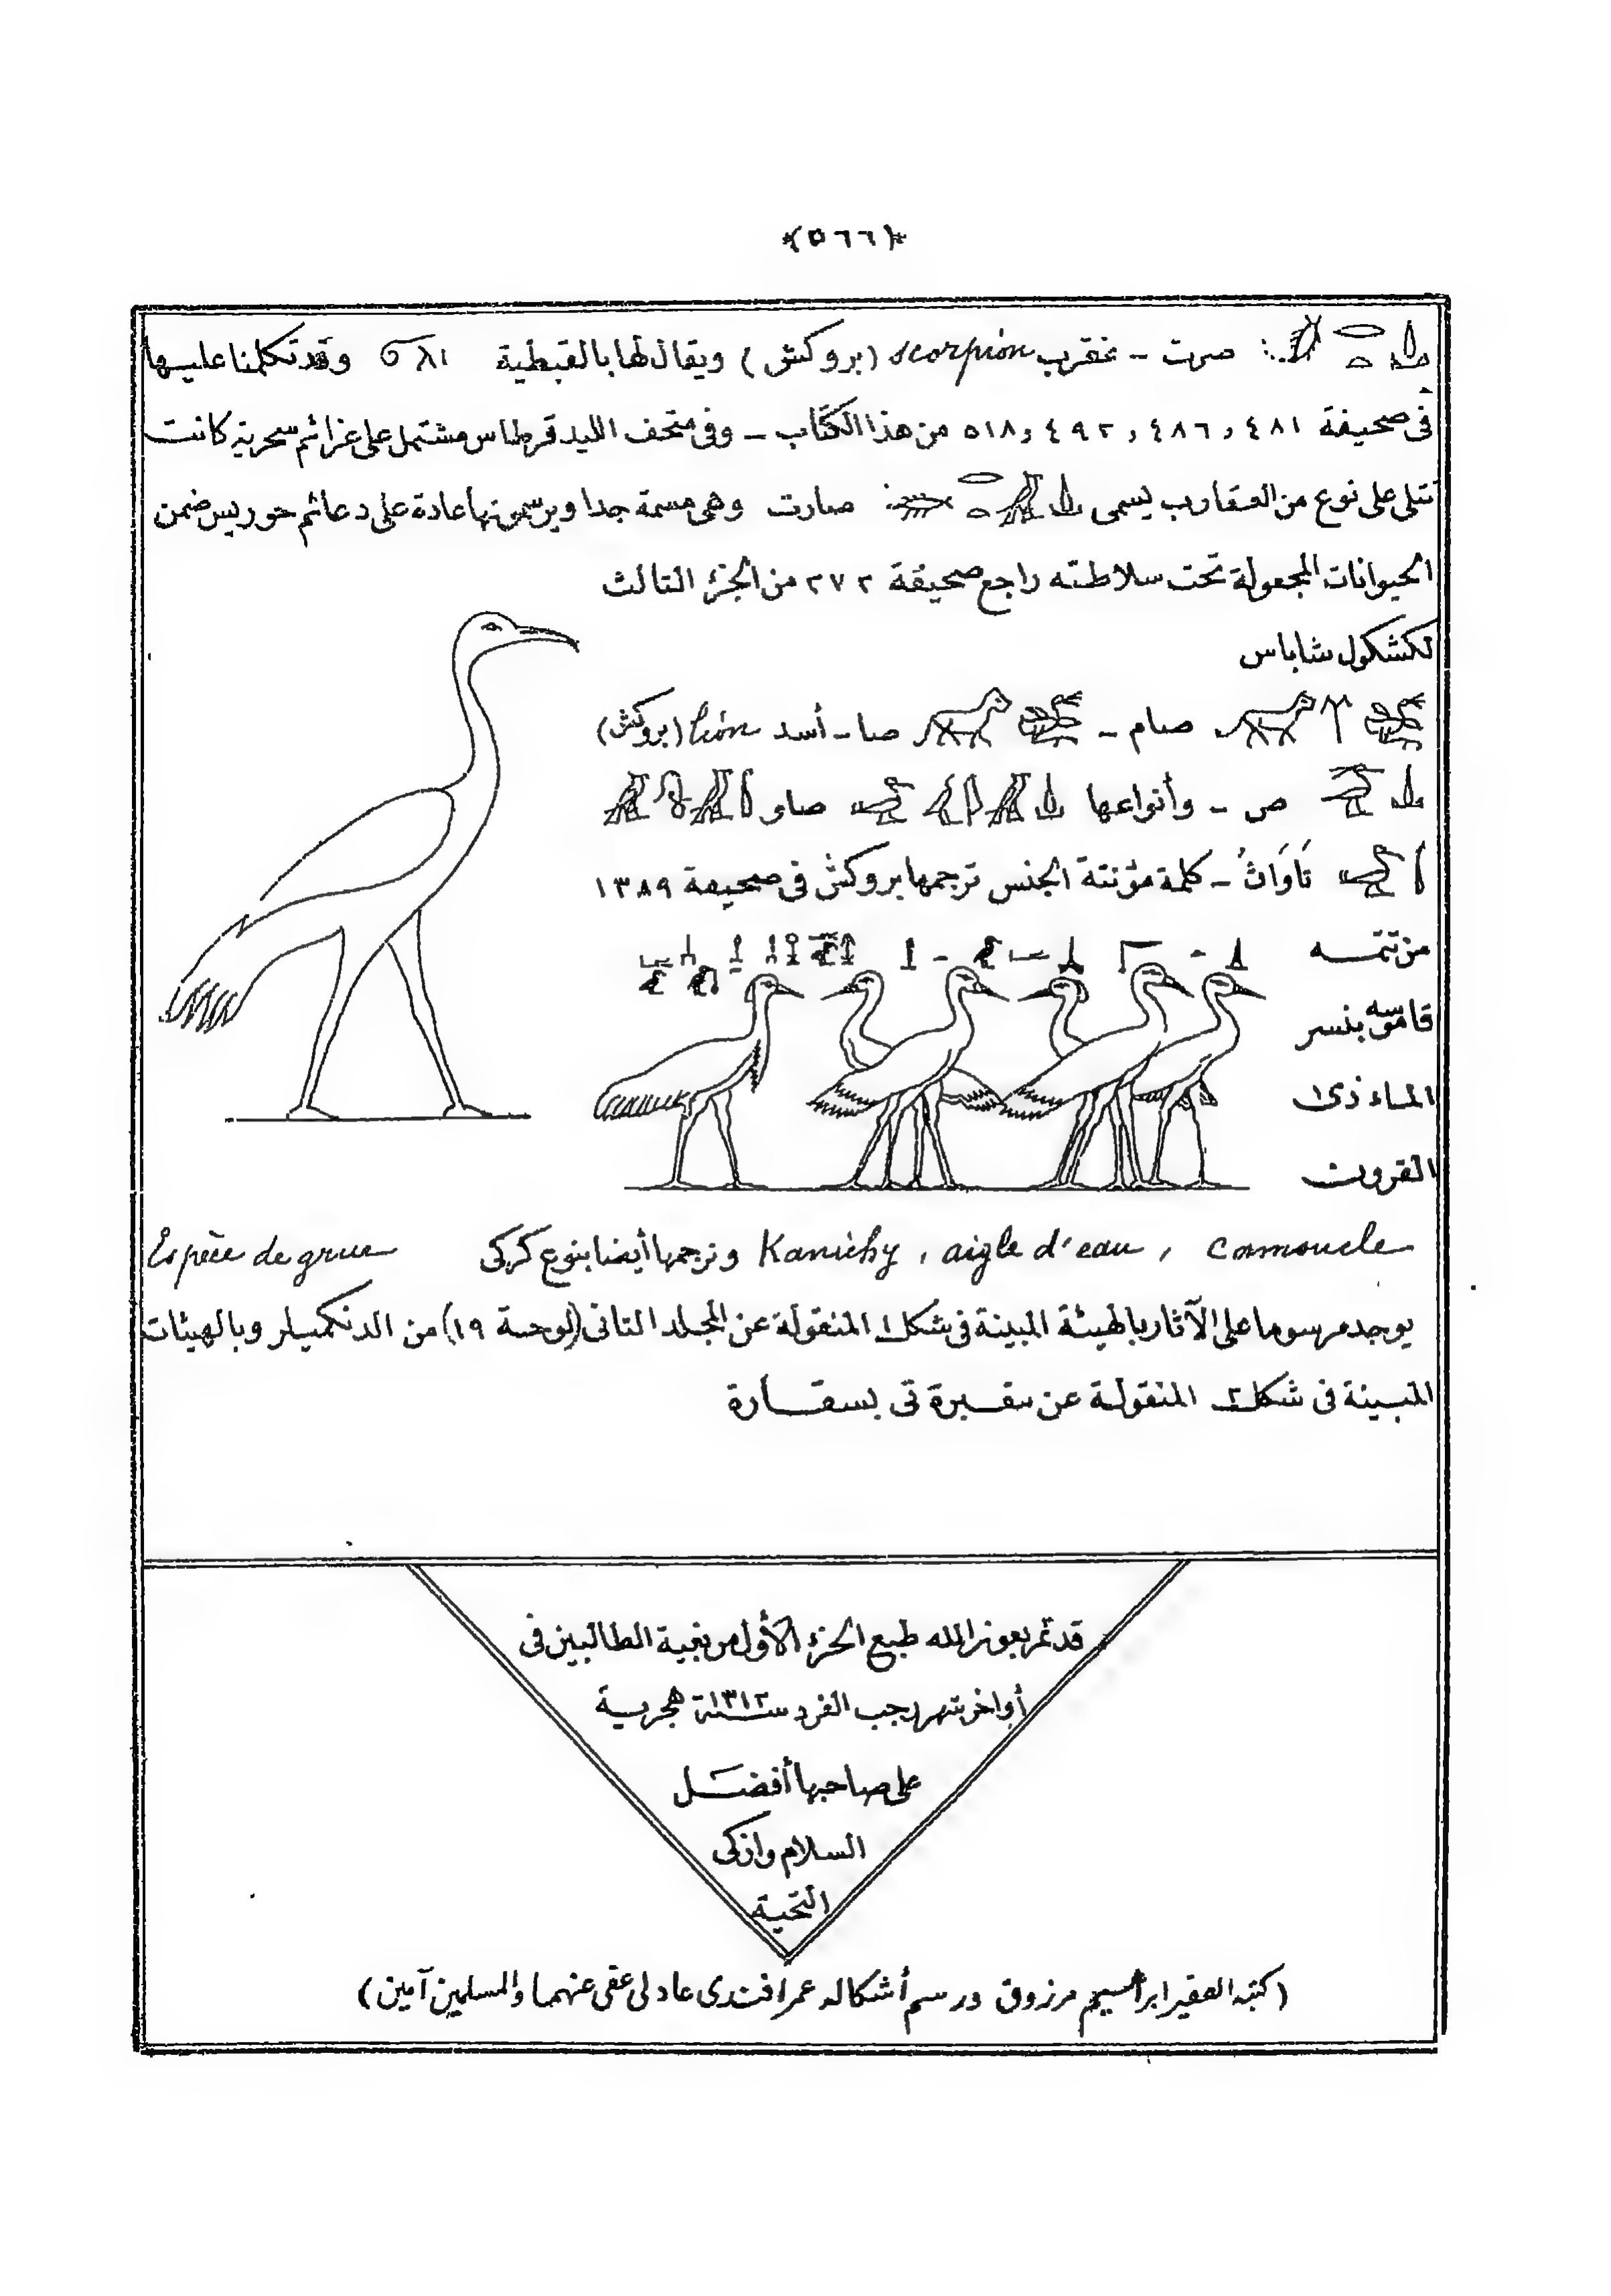 ﴿٥٦٦﴾
صرت - عقرب scorpion (بروكش) ويقال لها بالقبطية وقد تكلمنا عليها
فى صحيفة ٤٨١ و ٤٨٦ و ٤٩٢ و ٥١٨ من هذا الكتاب - وفى متحف الليد قرطاس مشتمل على عزائم سحرية كانت
تتلى على نوع من العقارب يسمى صارت وهى مسمة جدا ويرسمونها عادة على دعائم حوريس ضمن
الحيوانات المجعولة تحت سلاطته راجع صحيفة ٢٧٢ من الجزء الثالث
لكشكول شاباس
صام - صا - أسد lion (بروكش)
ص - وأنواعها صاو
تَاوَاتُ - كلمة مؤنثة الجنس ترجمها بروكش فى صحيفة ١٣٨٩
من تتمــه
قاموسه بنسر
الماء ذى ا
القرون
Camoucle , Kamichy , aigle d'eau وترجمها أيضا بنوع كركى Espèce de grue
يوجد مرسوما على الآثار بالهيئة المبينة فى شكل ١ المنقولة عن المجلد الثانى (لوحة ١٩) من الدنكميلر وبالهيئات
المبينة فى شكل ٢ المنقولة عن مقبرة تى بسقارة
قد تم بعون الله طبع الجزء الأول من بغية الطالبين فى
أواخر شهر رجب الفرد سنة ١٣١٢ هجرية
على صاحبها أفضل
السلام وازكى
التحية
(كتبه الفقير ابراهيم مرزوق ورسم أشكاله عمر افندى عادلى عفى عنهما والمسلمين آمين)